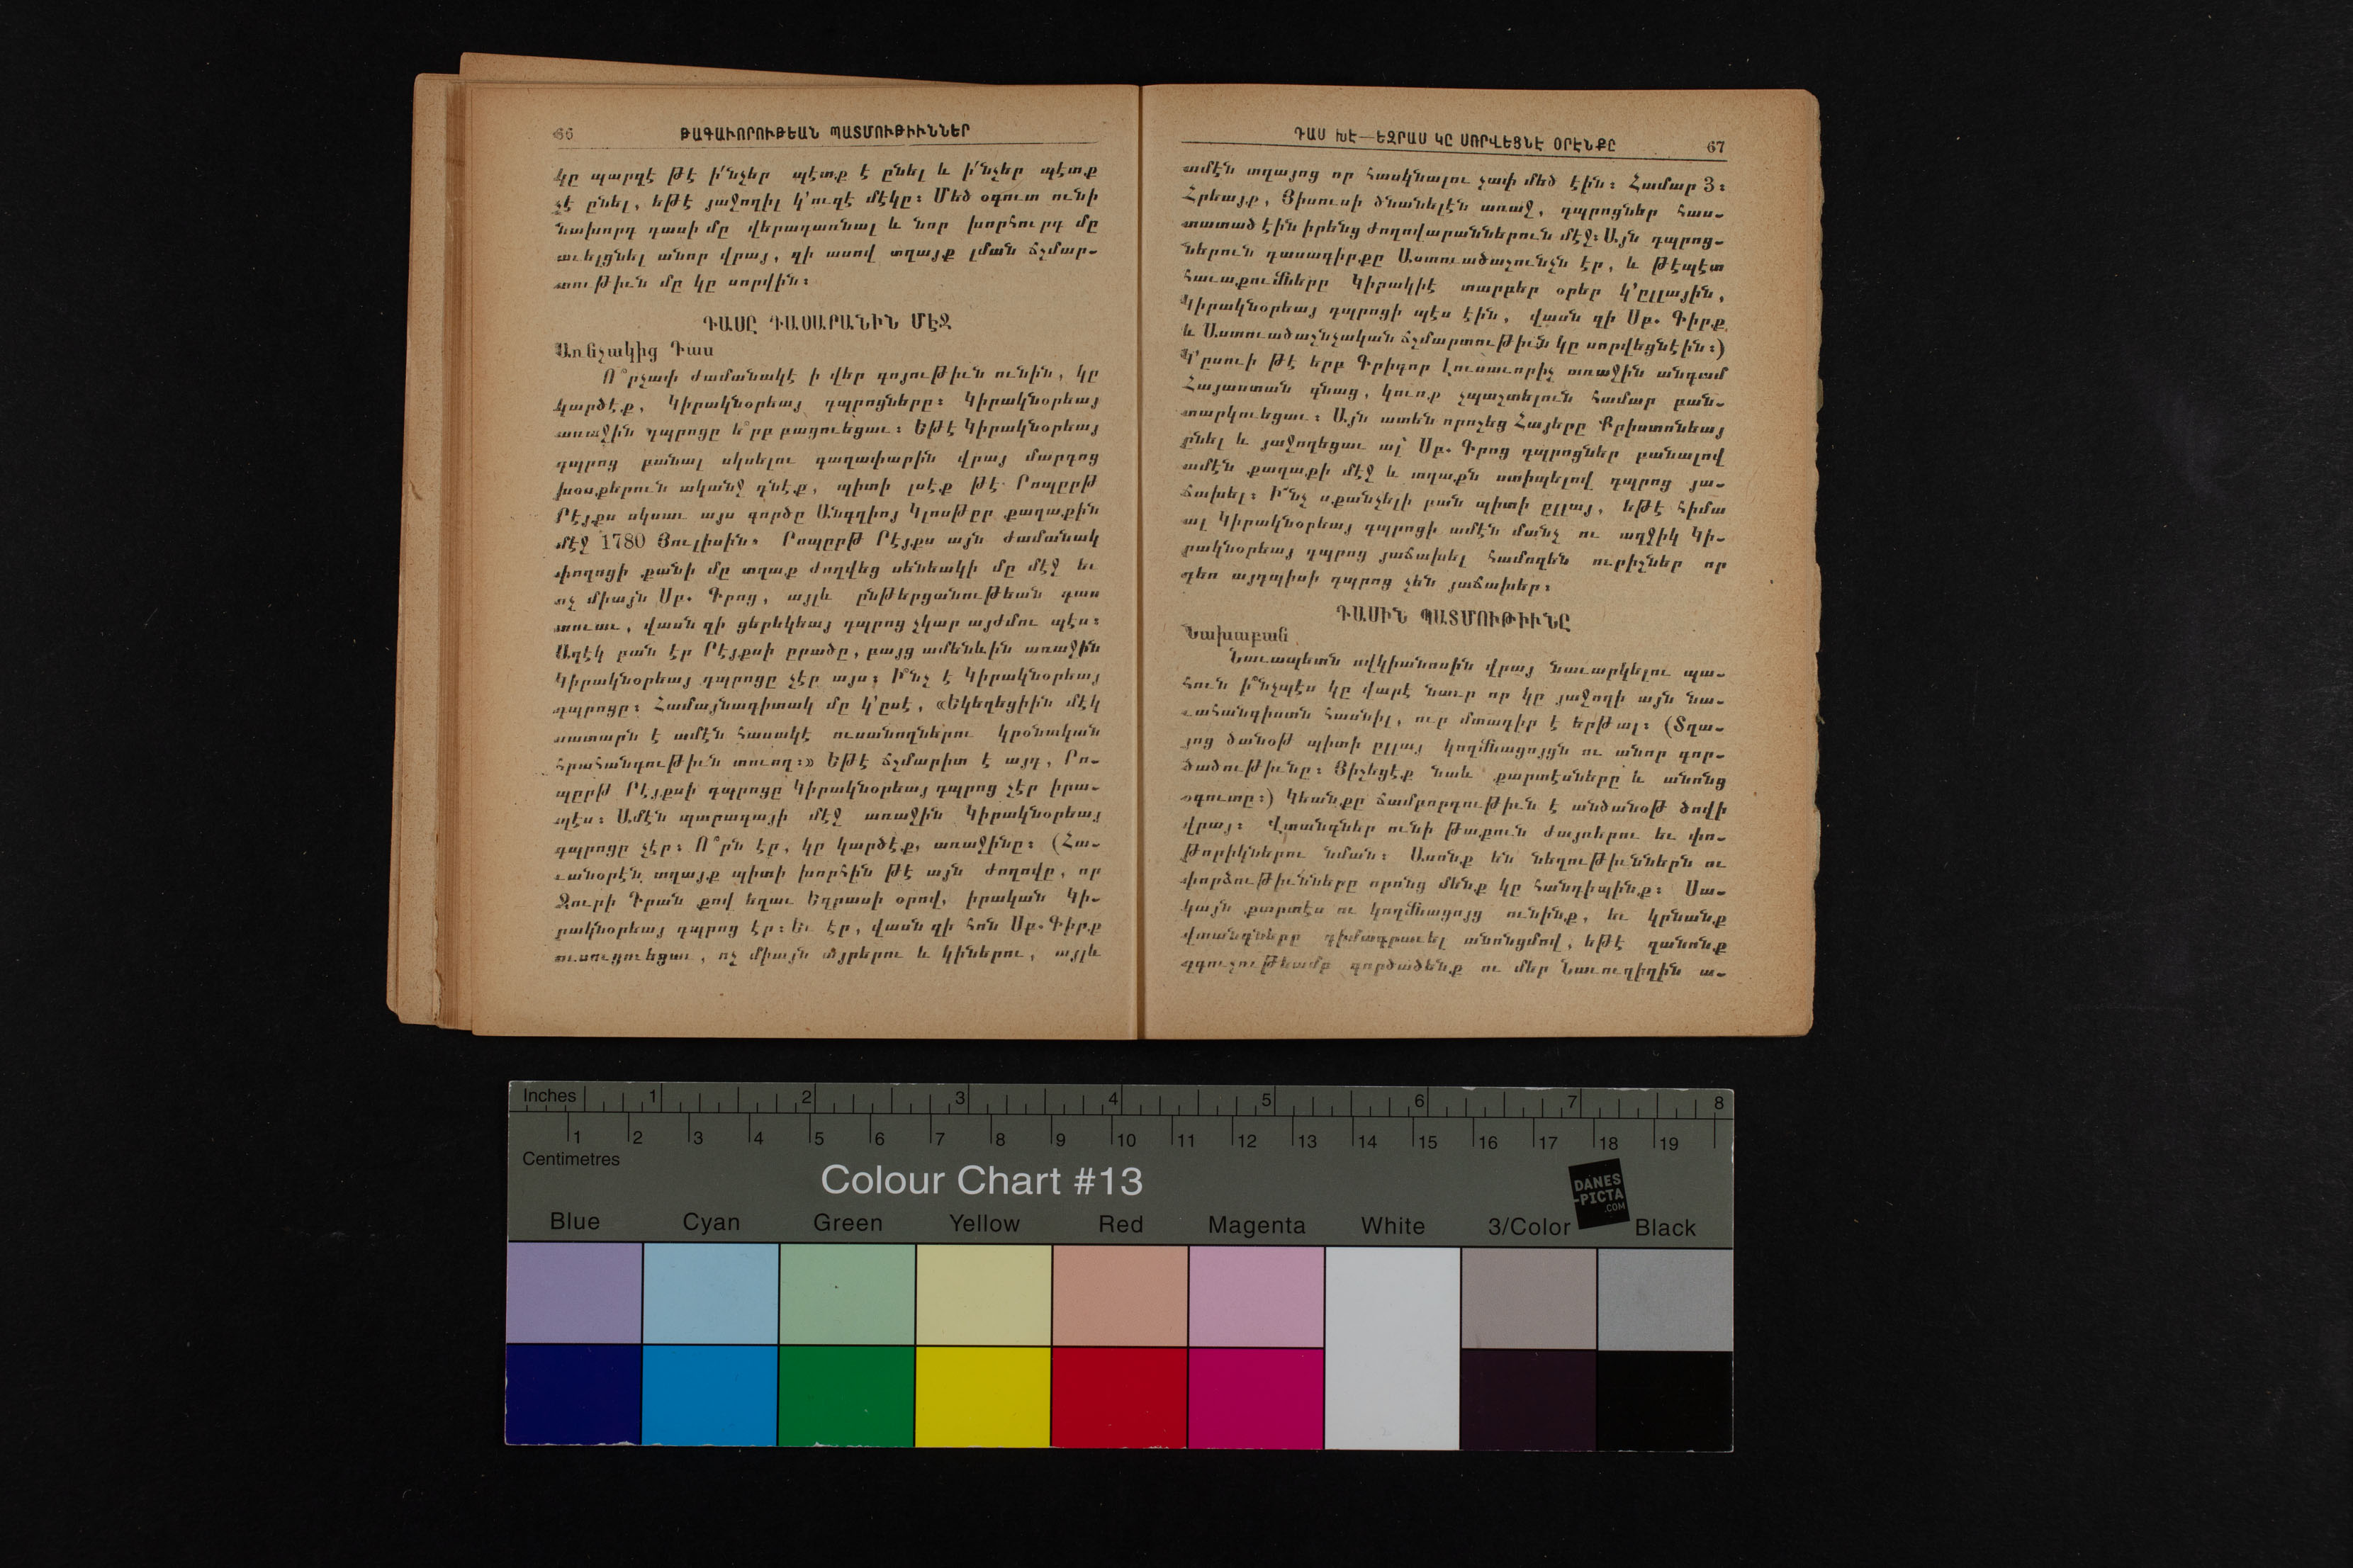 66 ԹԱԳԱՒՈՐՈՒԹԵԱՆ ՊԱՏՄՈՒԹԻՒՆՆԵՐ
կը պարզէ թէ ի՛նչեր պէտք է ընել և ի՛նչեր պէտք
չէ ընել, եթէ յաջողիլ կ՚ուզէ մէկը։ Մեծ օգուտ ունի
նախորդ դասի մը վերադառնալ և նոր խորհուրդ մը
աւելցնել անոր վրայ, զի ասով տղայք լման ճշմար-
տութիւն մը կը սորվին։
ԴԱՍԸ ԴԱՍԱՐԱՆԻՆ ՄԷՋ
Առնչակից Դաս
Ո՞րչափ ժամանակէ ի վեր գոյութիւն ունին, կը
կարծէք, Կիրակնօրեայ դպրոցները։ Կիրակնօրեայ
առաջին դպրոցը ե՞րբ բացուեցաւ։ Եթէ Կիրակնօրեայ
դպրոց բանալ սկսելու գաղափարին վրայ մարդոց
խօսքերուն ականջ դնէք, պիտի լսէք թէ Րոպըրթ
Րէյքս սկսաւ այս գործը Անգղիոյ Կլոսթըր քաղաքին
մէջ 1780 Յուլիսին. Րոպըրթ Րէյքս այն ժամանակ
փողոցի քանի մը տղաք ժողվեց սենեակի մը մէջ եւ
ոչ միայն Սբ. Գրոց, այլև ընթերցանութեան դաս
տուաւ, վասն զի ցերեկեայ դպրոց չկար այժմու պէս։
Աղէկ բան էր Րէյքսի ըրածը, բայց ամենևին առաջին
Կիրակնօրեայ դպրոցը չէր այս։ Ի՞նչ է Կիրակնօրեայ
դպրոցը։ Համայնագիտակ մը կ՚ըսէ, «Եկեղեցիին մէկ
սատարն է ամէն հասակէ ուսանողներու կրօնական
հրահանգութիւն տուող։» Եթէ ճշմարիտ է այդ, Րո-
պըրթ Րէյքսի դպրոցը Կիրակնօրեայ դպրոց չէր իրա-
պէս։ Ամէն պարագայի մէջ առաջին Կիրակնօրեայ
դպրոցը չէր։ Ո՞րն էր, կը կարծէք, առաջինը։ (Հա-
ւանօրէն տղայք պիտի խորհին թէ այն ժողովը, որ
Ջուրի Դրան քով եղաւ Եզրասի օրով, իրական Կի-
րակնօրեայ դպրոց էր։ Եւ էր, վասն զի հոն Սբ. Գիրք
ուսուցուեցաւ, ոչ միայն այրերու և կիներու, այլև
ԴԱՍ ԽԷ—ԵԶՐԱՍ ԿԸ ՍՈՐՎԵՑՆԷ ՕՐԷՆՔԸ 67
ամէն տղայոց որ հասկնալու չափ մեծ էին։ Համար 3։
Հրեայք, Յիսուսի ծնանելէն առաջ, դպրոցներ հաս-
տատած էին իրենց ժողովարաններուն մէջ։ Այն դպրոց-
ներուն դասագիրքը Աստուածաշունչն էր, և թէպէտ
հաւաքումները Կիրակիէ տարբեր օրեր կ՚ըլլային,
Կիրակնօրեայ դպրոցի պէս էին, վասն զի Սբ. Գիրք
և Աստուածաշնչական ճշմարտութիւն կը սորվեցնէին։)
Կ՚ըսուի թէ երբ Գրիգոր Լուսաւորիչ առաջին անգամ
Հայաստան գնաց, կուռք չպաշտելուն համար բան-
տարկուեցաւ։ Այն ատեն որոշեց Հայերը Քրիստոնեայ
ընել և յաջողեցաւ ալ՝ Սբ. Գրոց դպրոցներ բանալով
ամէն քաղաքի մէջ և տղաքն ստիպելով դպրոց յա-
ճախել։ Ի՜նչ սքանչելի բան պիտի ըլլայ, եթէ հիմա
ալ Կիրակնօրեայ դպրոցի ամէն մանչ ու աղջիկ Կի-
րակնօրեայ դպրոց յաճախել համոզեն ուրիշներ որ
դեռ այդպիսի դպրոց չեն յաճախեր։
ԴԱՍԻՆ ՊԱՏՄՈՒԹԻՒՆԸ
Նախաբան
Նաւապետն ովկիանոսին վրայ նաւարկելու պա-
հուն ի՞նչպէս կը վարէ նաւր որ կը յաջողի այն նա-
ւահանգիստն հասնիլ, ուր մտադիր է երթալ։ (Տղա-
յոց ծանօթ պիտի ըլլայ կողմնացոյցն ու անոր գոր-
ծածութիւնը։ Յիշեցէք նաև քարտէսները և անոնց
օգուտը։) Կեանքը ճամբորդութիւն է անծանօթ ծովի
վրայ։ Վտանգներ ունի թաքուն ժայռերու եւ փո-
թորիկներու նման։ Ասոնք են նեղութիւններն ու
փորձութիւնները որոնց մենք կը հանդիպինք։ Սա-
կայն քարտէս ու կողմնացոյց ունինք, եւ կրնանք
վտանգները դիմագրաւել անոնցմով, եթէ զանոնք
զգուշութեամբ գործածենք ու մեր Նաւուղիղին ա-
Inches 1 2 3 4 5 6 7 8
1 2 3 4 5 6 7 8 9 10 11 12 13 14 15 16 17 18 19
Centimetres
Colour Chart #13
DANES
-PICTA
.COM
Blue Cyan Green Yellow Red Magenta White 3/Color Black